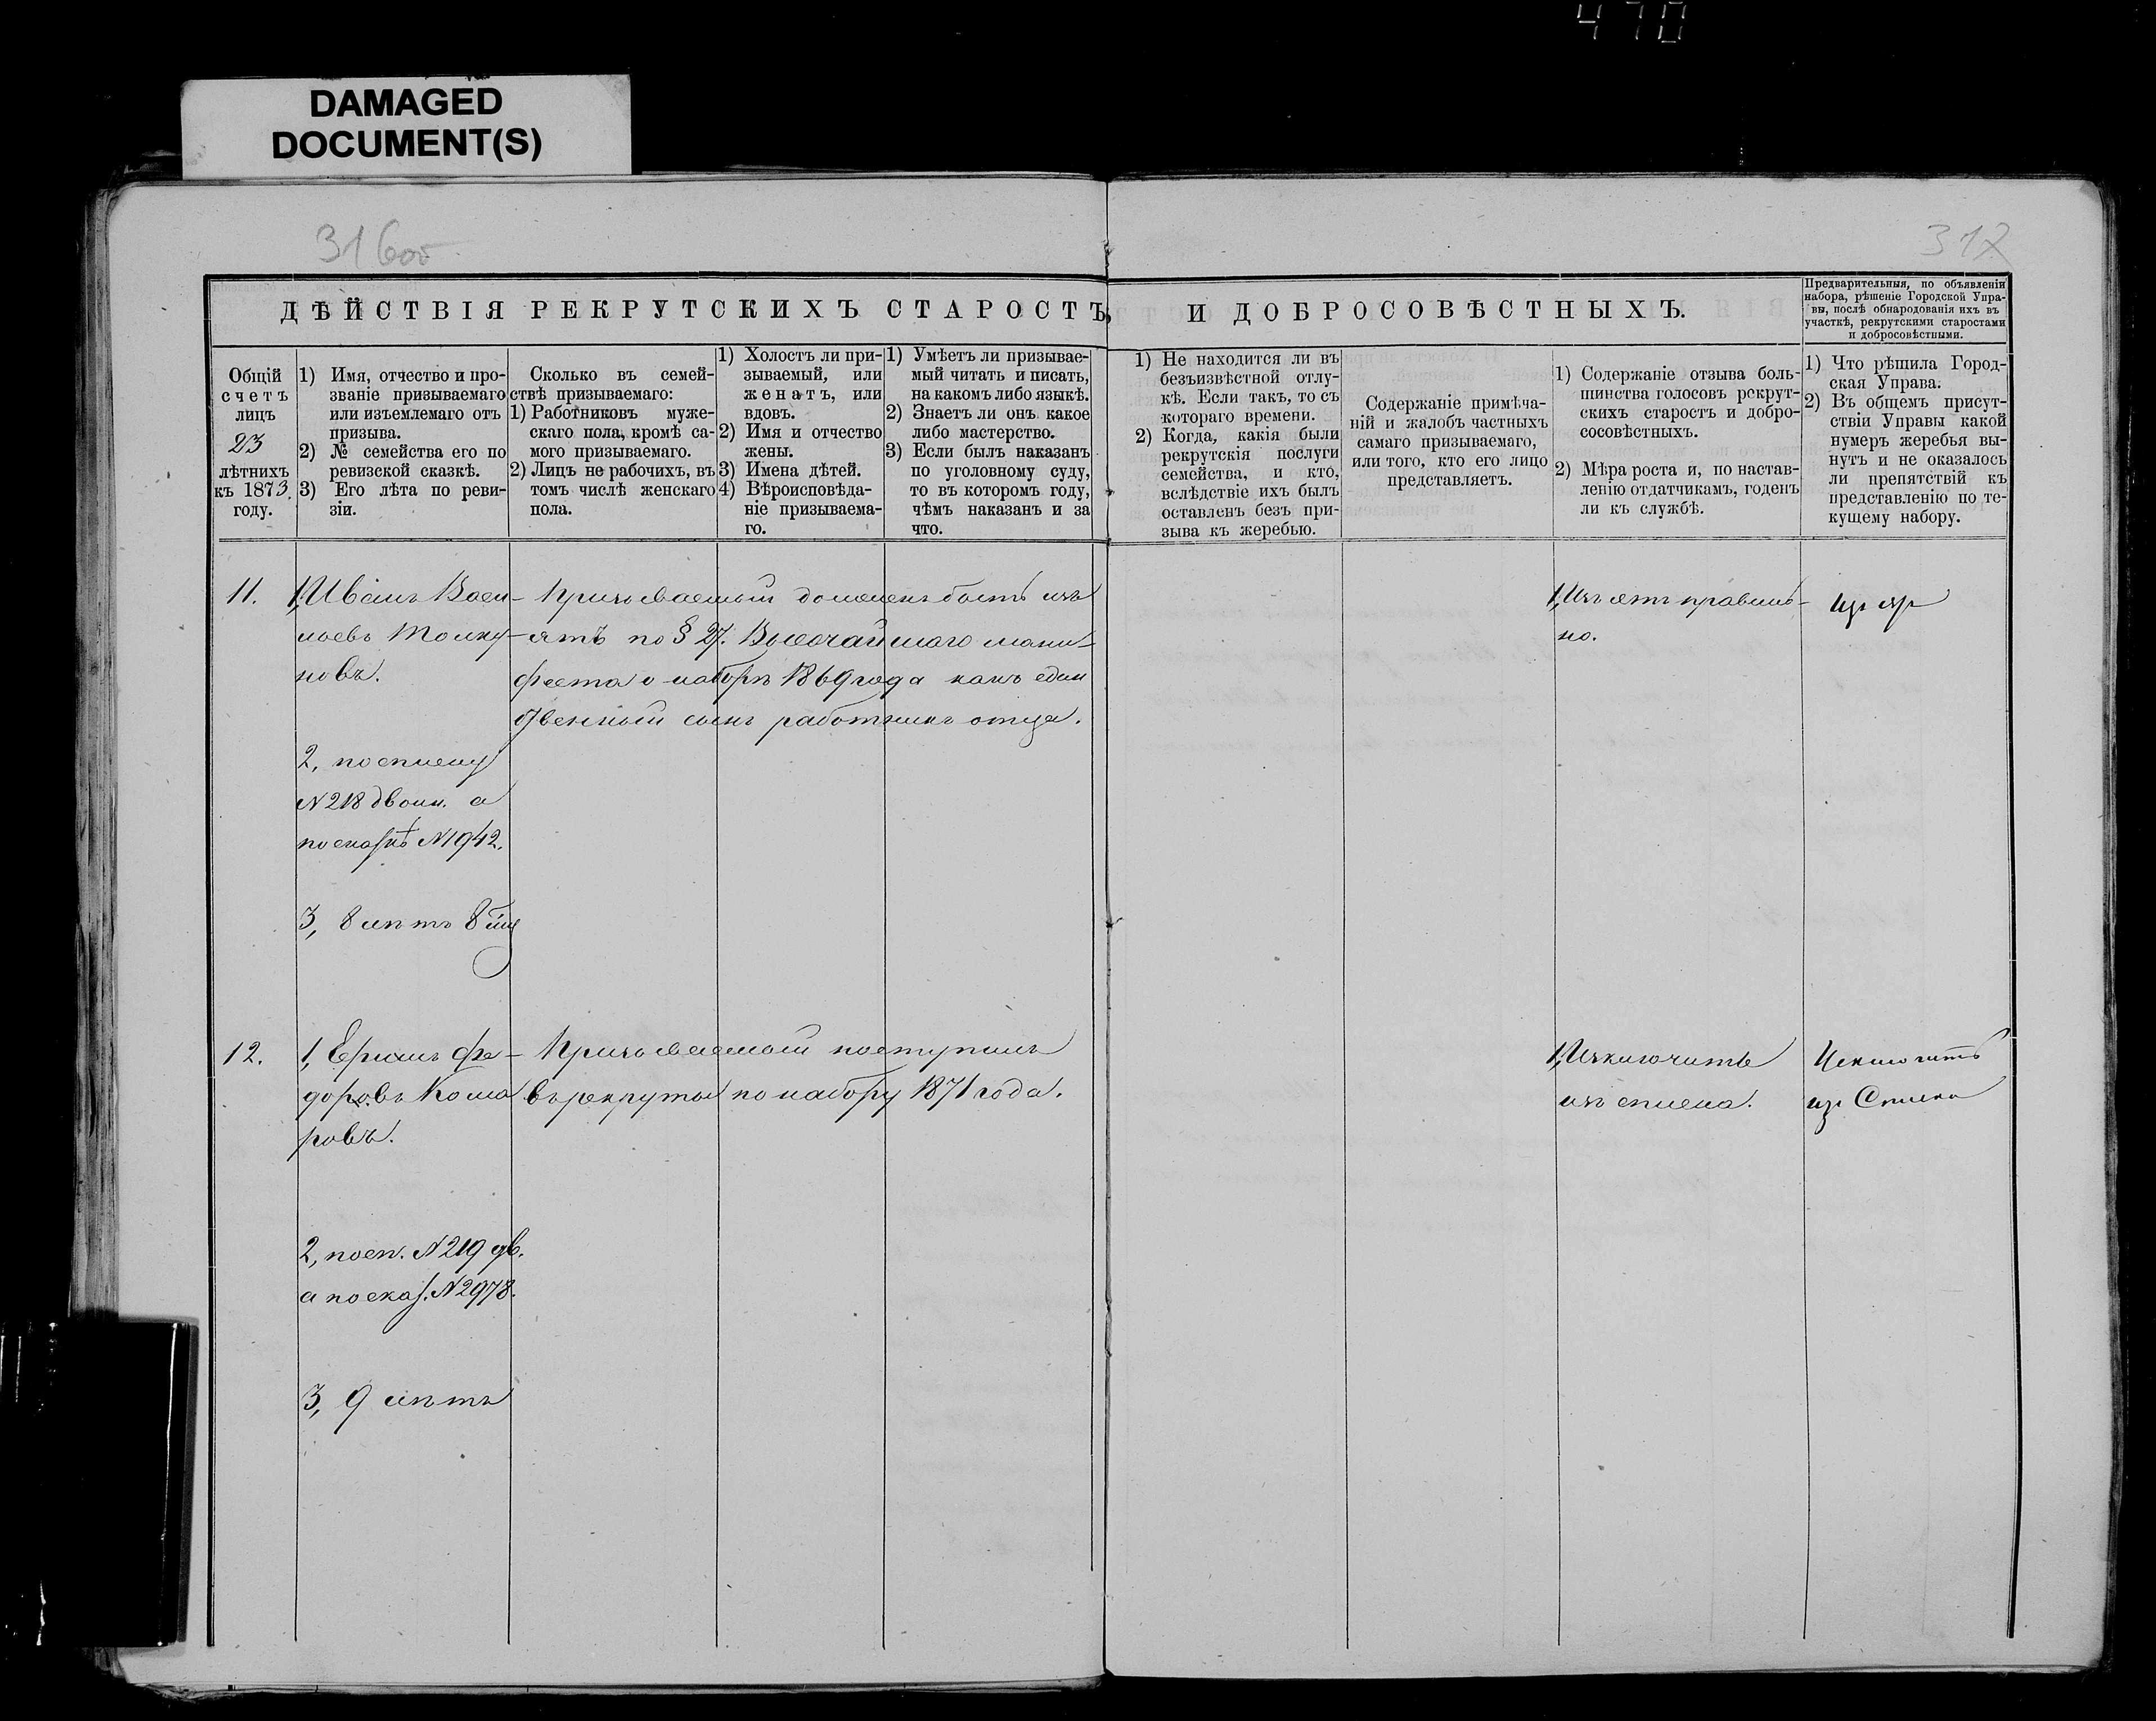 470
DAMAGED
DOCUMENT(S)
316об
317
ДѢЙСТВІЯ РЕКРУТСКИХЪ СТАРОСТЪ,
И ДОБРОСОВѢСТНЫХЪ.
Предварительныя, по объявленіи
набора, рѣшеніе Городской Упра-
вы, послѣ обнародованія ихъ въ
участкѣ, рекрутскими старостами
и добросовѣстными.
Общій
счетъ
лицъ
23
лѣтнихъ
къ 1873,
году.
1) Имя, отчество и про-
званіе призываемаго
или изъемлемаго отъ
призыва.
2) № семейства его по
ревизской сказкѣ.
3) Его лѣта по реви-
зіи.
Сколько въ семей-
ствѣ призываемаго:
1) Работниковъ муже-
скаго пола, кромѣ са-
мого призываемаго.
2) Лицъ не рабочихъ, въ
томъ числѣ женскаго
пола.
1) Холостъ ли при-
зываемый, или
женатъ, или
вдовъ.
2) Имя и отчество
жены.
3) Имена дѣтей.
4) Вѣроисповѣда-
ніе призываема-
го.
1) Умѣетъ ли призывае-
мый читать и писать,
на какомъ либо языкѣ.
2) Знаетъ ли онъ какое
либо мастерство.
3) Если былъ наказанъ
по уголовному суду,
то въ которомъ году,
чѣмъ наказанъ и за
что.
1) Не находится ли въ
безъизвѣстной отлу-
кѣ. Если такъ, то съ
котораго времени.
2) Когда, какія были
рекрутскія послуги
семейства, и кто,
вслѣдствіе ихъ былъ
оставленъ безъ при-
зыва къ жеребью.
Содержаніе примѣча-
ній и жалобъ частныхъ
самаго призываемаго,
или того, кто его лицо
представляетъ.
1) Содержаніе отзыва боль-
шинства голосовъ рекрут-
скихъ старостъ и добро-
сосовѣстныхъ.
2) Мѣра роста и, по настав-
ленію отдатчикамъ, годенъ
ли къ службѣ.
1) Что рѣшила Город-
ская Управа.
2) Въ общемъ присут-
ствіи Управы какой
нумеръ жеребья вы-
нутъ и не оказалось
ли препятствій къ
представленію по те-
кущему набору.
11.
1, Иванъ Васи-
льевъ Толку-
новъ.
2, по списку
N 218 двойн. а
по сказкѣ N 1942.
3, 8 лѣтъ 8
Призываемый долженъ быть изъ
ятъ по § 27. Высочайшаго мани-
феста о наборѣ 1869 года какъ един
ственный сынъ работникъ отца.
1, Изъятъ правиль-
но.
12.
1, Ермилъ Фе-
доровъ Кома
ровъ.
2, по сп. N 219 дв.
а по сказ. N 2978.
3, 9 лѣтъ
Призываемый поступилъ
въ рекруты по набору 1871 года.
1, Изключить
изъ списка.
Исключить
из Списка